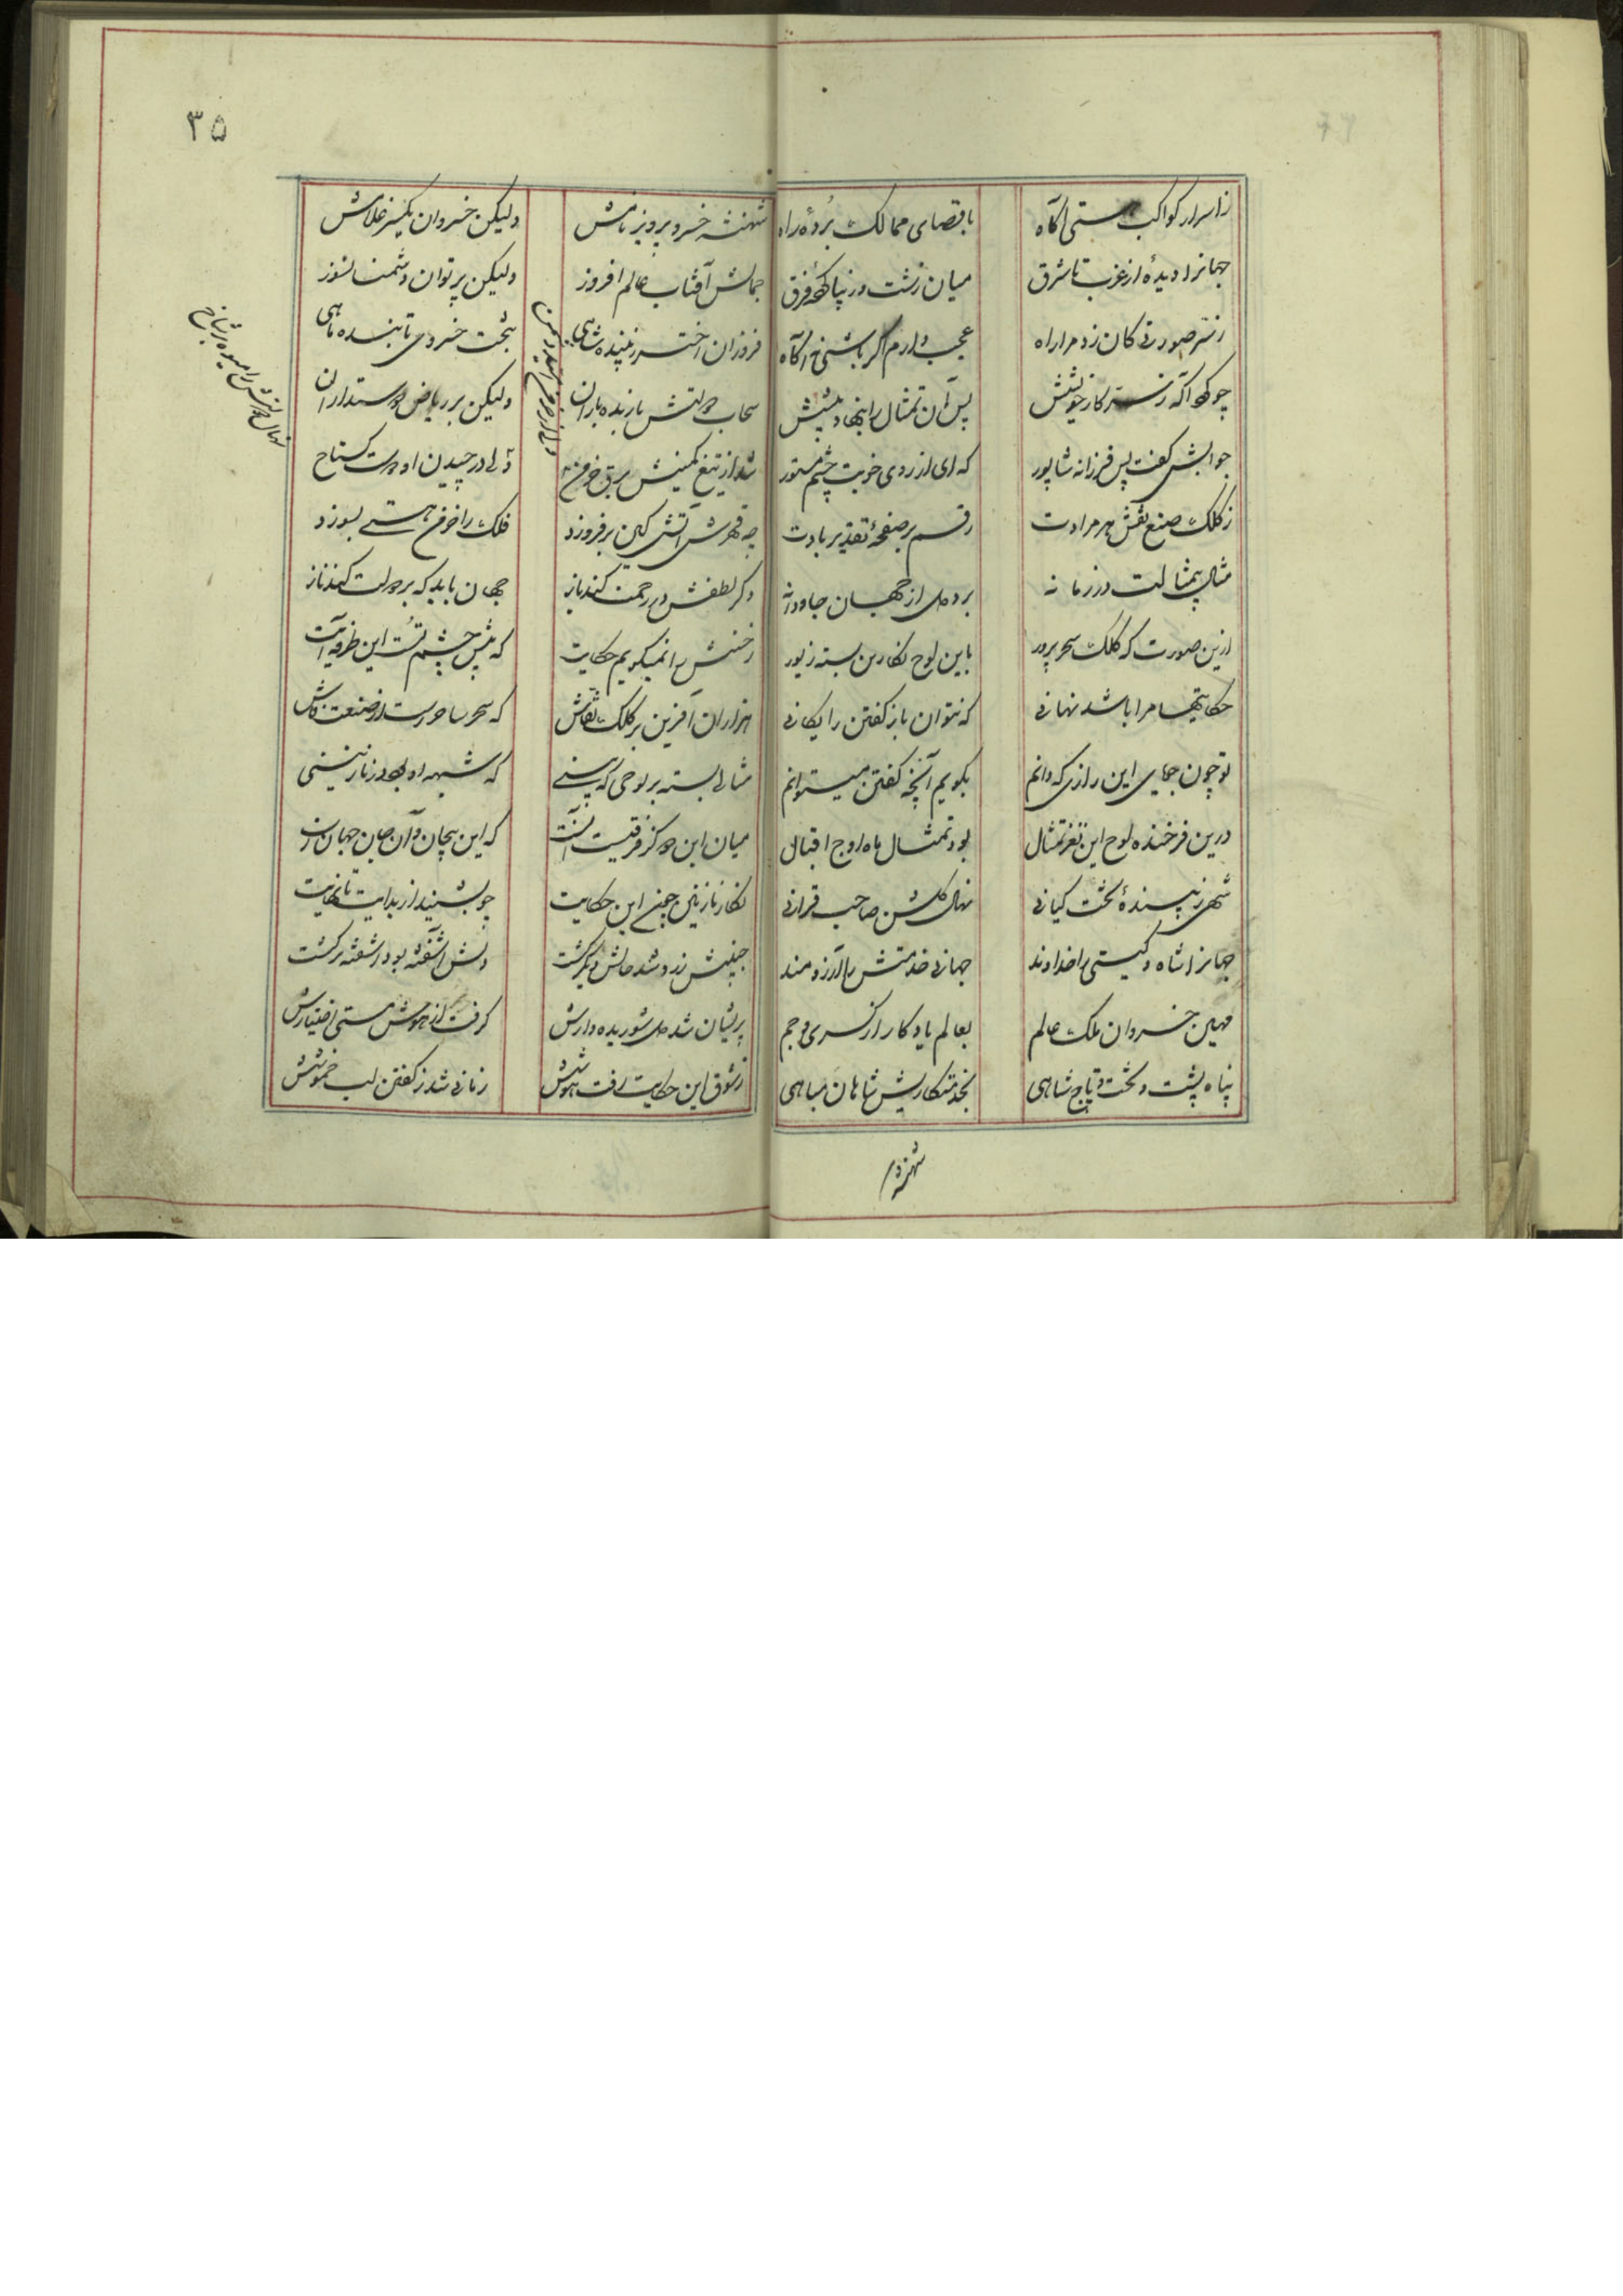 ز اسرار کواکب هستی آگاه باقصای ممالک بُردۀ راه
جهانرا دیدۀ از غرب تا شرق میان زشت و زیبا کردۀ فرق
ز سر صورتی کان زد مرا راه عجب دارم اگر باشی نه آگاه
چو کرد آگه ز سر کار خویشش پس آن تمثال را بنهاد پیشش
جوابش گفت پس فرزانه شاپور که ای از روی خوبت چشم بد دور
ز کلک صنع نقش هر مرادت رقم بر صفحۀ تقدیر بادت
مثال بیمثالت در زمانه برد دل از جهان جاودانه
ازین صورت که کلک سحر پرور باین لوح نگارین بسته زیور
حکایتها مرا باشد نهانی که نتوان باز گفتن رایگانی
تو چون جویای این رازی که دانم بگویم آنچه گفتن میتوانم
درین فرخنده لوح این نغز تمثال بود تمثال ماه اوج اقبال
شهی زیبندۀ تخت کیانی نهال گلشن صاحب قرانی
جهانرا شاه و گیتی را خداوند جهانی خدمتش را آرزومند
مهین خسروان ملک عالم بعالم یادگار از کسری و جم
پناه پشت و تخت و تاج شاهی بخدمتگاریش شاهان مباهی
شهنشه
۳۵
شهنشه خسرو پرویز نامش ولیکن خسروان یکسر غلامش
جمالش آفتاب عالم افروز ولیکن پرتوان دشمنا نسوز
فروزان اختر زیبنده شاهی بتخت خسروی تابنده ماهی
سحاب دولتش بارنده باران ولیکن بر ریاض دوستداران
شد از تیغ کمینش برق خرمن
نهال دولتش را میوه بر شاخ ولی در چیدن او دوست گستاخ
چه قهرش آتش کین بر فروزد فلک را خرمن هستی بسوزد
وگر لطفش در رحمت کند باز جهان باید که بر دولت کند ناز
ز حسنش را نمیگویم حکایت که پیش چشم تست این طرفه آیت
هزاران آفرین بر کلک نقاش که سحر ساحرست از صنعت فاش
مثالی بسته بر لوحی که بینی که شبهه او بود نازنینی
میان این دو گر فرقیست آنست که این بیجان و آن جان جهان است
نگار نازنین چون این حکایت چو بشنید از بدایت تا نهایت
جنبش زد و شد حالش دیگر گشت دلش آشفته بود آشفته‌تر گشت
پریشان شد دل شوریده وارش گرفت از هوش مستی اختیارش
ز شوق این حکایت رفت هوشش زمانی شد ز گفتن لب خموشش